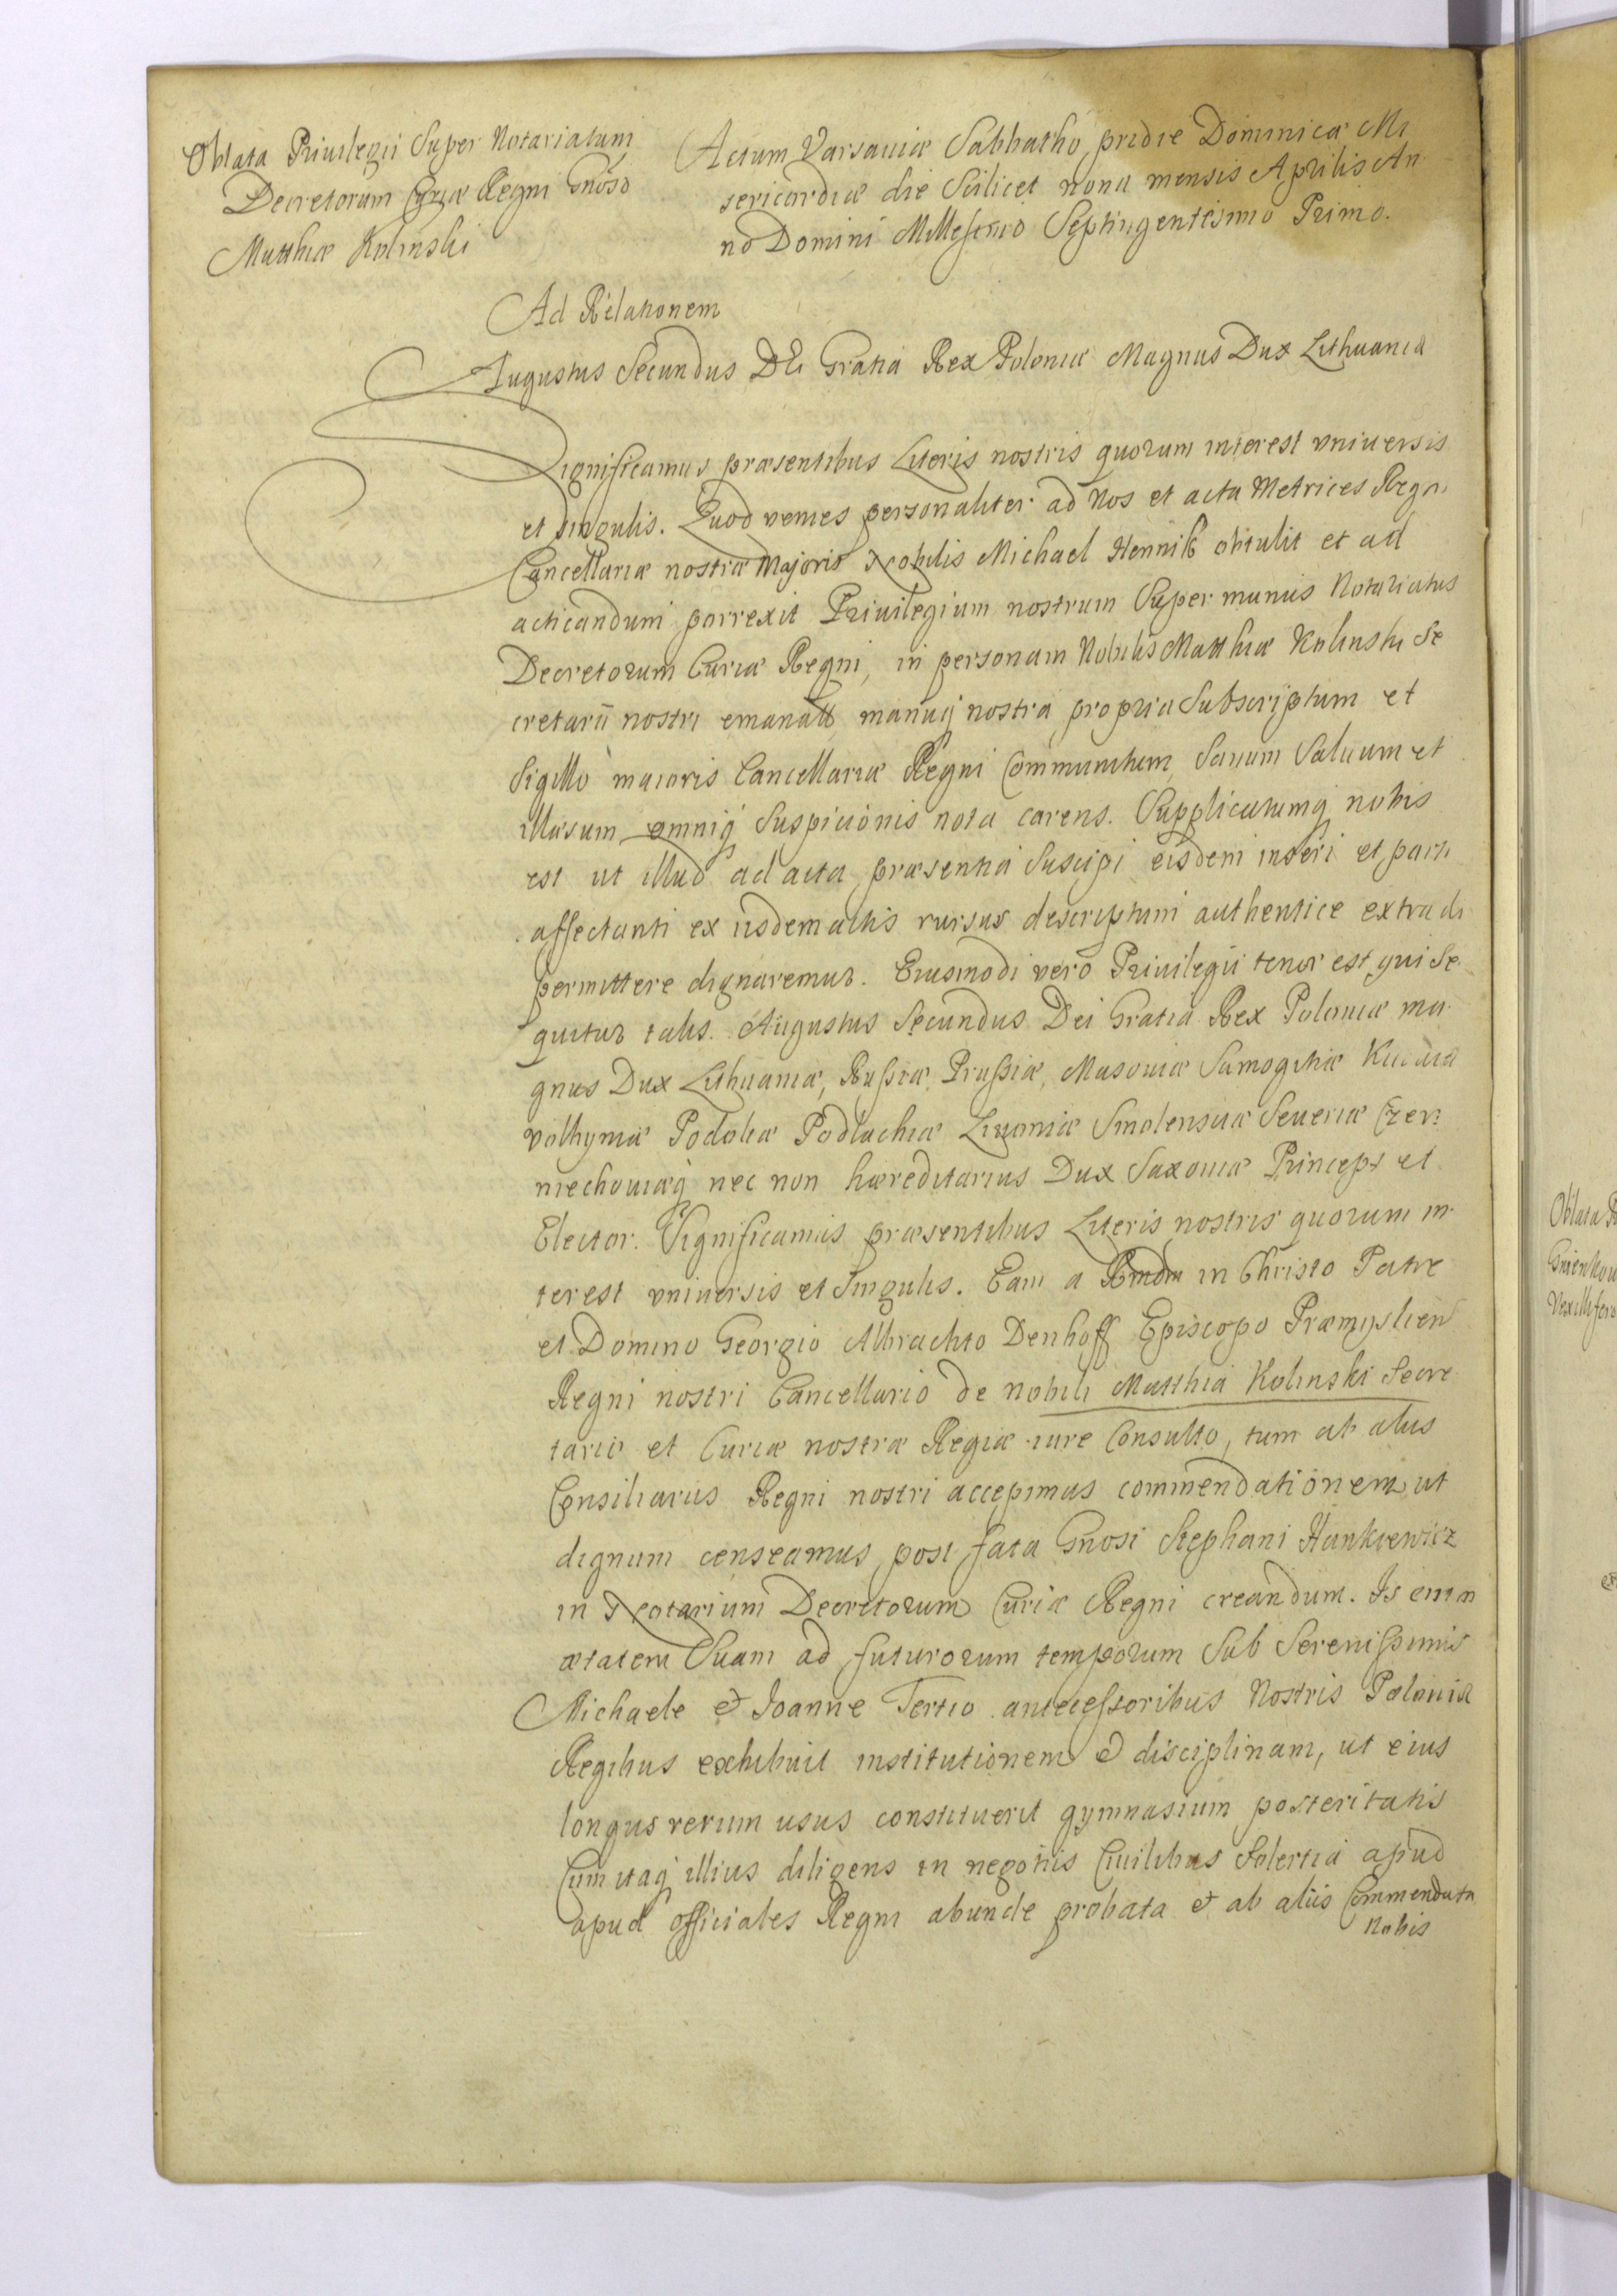 Oblata Priuilegii Super Notariatum
Decretorum Curiæ Regni Gnoso
Matthiæ Kolinski
Actum Varsauiæ Sabbatho pridie Dominicæ Mi
sericordiæ die Scilicet nona mensis Aprilis An
no Domini Millesimo Septingentesimo Primo.
Ad Relationem
Augustus Secundus DEi Gratia Rex Poloniæ Magnus Dux Lithuaniæ
Significamus præsentibus Literis nostris quorum interest vniversis
et singulis. Quod veniēs personaliter ad Nos et acta Metrices Regni
Cancellariæ nostræ Majoris Nobilis Michael Hennik obtulit et ad
acticandum porrexit Priuilegium nostrum Super munus Notariatus
Decretorum Curiæ Regni, in personam Nobilis Matthiæ Kolinski Se
cretarii nostri emanatū manuq nostra propria Subscriptum et
Sigillo maioris Cancellariæ Regni Communitum, Sanum Saluum et
illæsum omniq Suspicionis nota carens. Supplicatumq nobis
est ut illud ad acta præsentia Suscipi eisdem inseri et parti
affectanti ex iisdem actis rursus descriptum authentice extradi
permittere dignaremur. Eiusmodi vero Priuilegii tenor est qui Se
quitur talis. Augustus Secundus Dei Gratia Rex Poloniæ ma
gnus Dux Lithuaniæ, Russiæ, Prussiæ, Masouiæ Samogitiæ Kiiouiæ
volhyniæ Podoliæ Podlachiæ Liuoniæ Smolensciæ Seueriæ Czer
niechouiæq nec non hæreditarius Dux Saxoniæ Princeps et
Elector. Significamus præsentibus Literis nostris quorum in
terest vniuersis et Singulis. Eam a Rmdm in Christo Patre
et Domino Georgio Albrachto Denhoff Episcopo Præmyslien
Regni nostri Cancellario de nobili Matthia Kolinski Secre
tario et Curiæ nostræ Regiæ iure Consulto, tum ab aliis
Consiliariis Regni nostri accepimus commendationem ut
dignum censeamus post fata Gnosi Stephani Hankiewicz
in Notarium Decretorum Curiæ Regni creandum. Is enim
ætatem Suam ad futurorum temporum Sub Serenissimis
Michaele & Joanne Tertio antecessoribus Nostris Poloniæ
Regibus exhibuit institutionem & disciplinam, ut eius
longus rerum usus constituerit gymnasium posteritatis
Cum itaq illius diligens in negotiis Ciuilibus Solertia apud
apud officiales Regni abunde probata & ab aliis Commendata
nobis
Oblata
Vexillifero